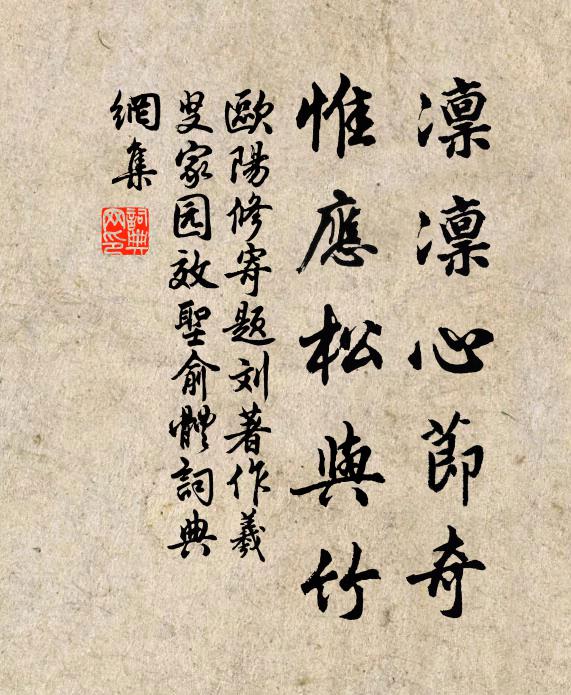 凛凛心節奇
惟應松與竹
歐陽修寄題刘著作羲
叟家园效聖俞體詞典
網集
詞典
网印